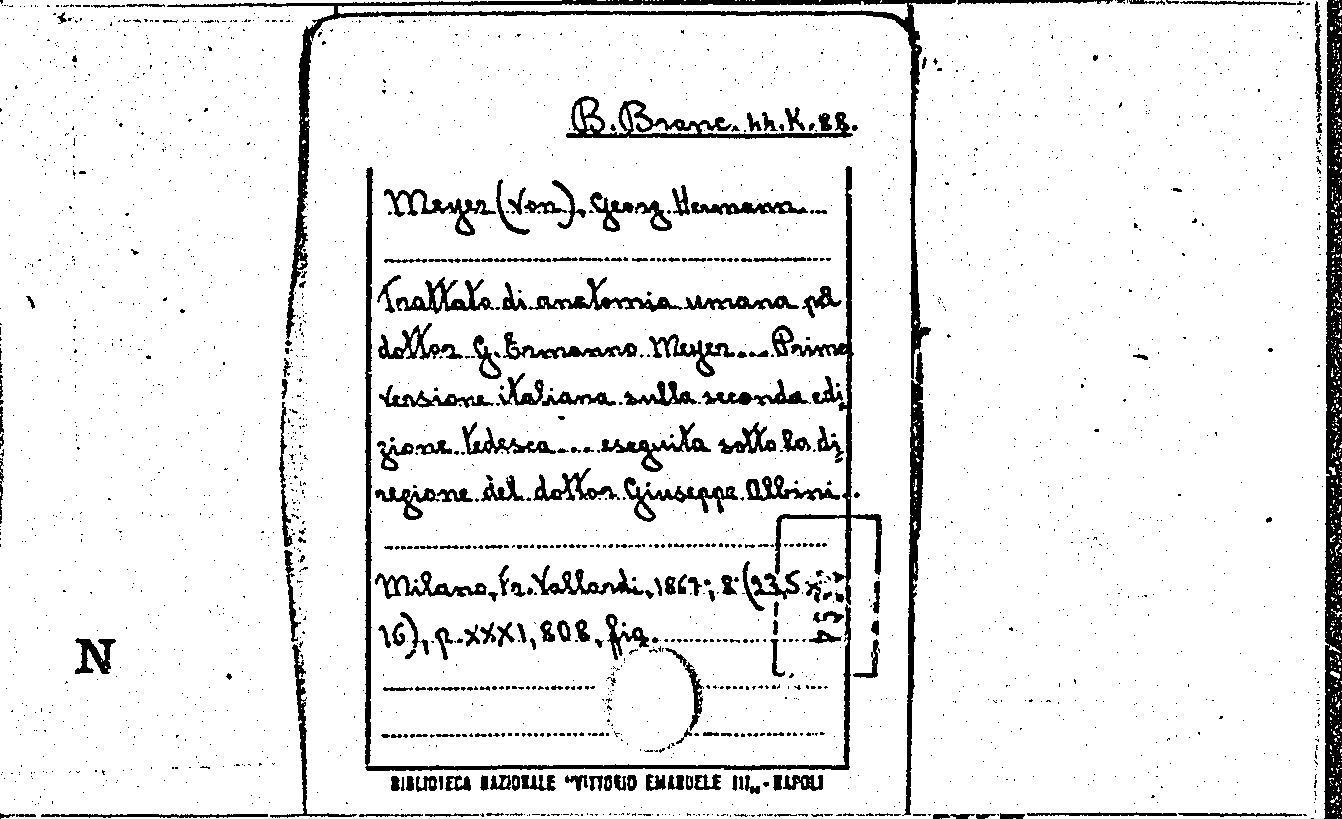 B. Branc. 44. K. 88.
Meyer (von), Georg Hermann...
Trattato di anatomia umana pel
dottor G. Ermanno Meyer... Prima
versione italiana sulla seconda edi
zione tedesca ... eseguita sotto la di
rezione del dottor Giuseppe Albini..
Milano, Fr. Vallardi, 1867; 8° (23,5 x
16), p. XXXI, 808, fig.
N
BIBLIOTECA NAZIONALE "VITTORIO EMANUELE III„ - NAPOLI